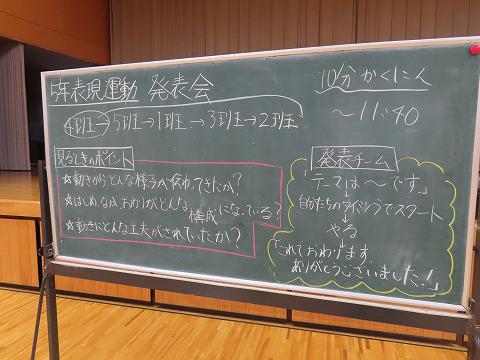 5年表現運動 発表会
4班→5班→1班→3班→2班
10分かくにん
〜11:40
見るときのポイント
☆動きから、どんな様子が伝わってきたか?
☆はじめ、なか、おわりがどんな構成になっている?
☆動きにどんな工夫がされていたか?
発表チーム
「テーマは〜です」
↓
自分たちのタイミングでスタート
↓
やる
↓
「これでおわります。
ありがとうございました!」